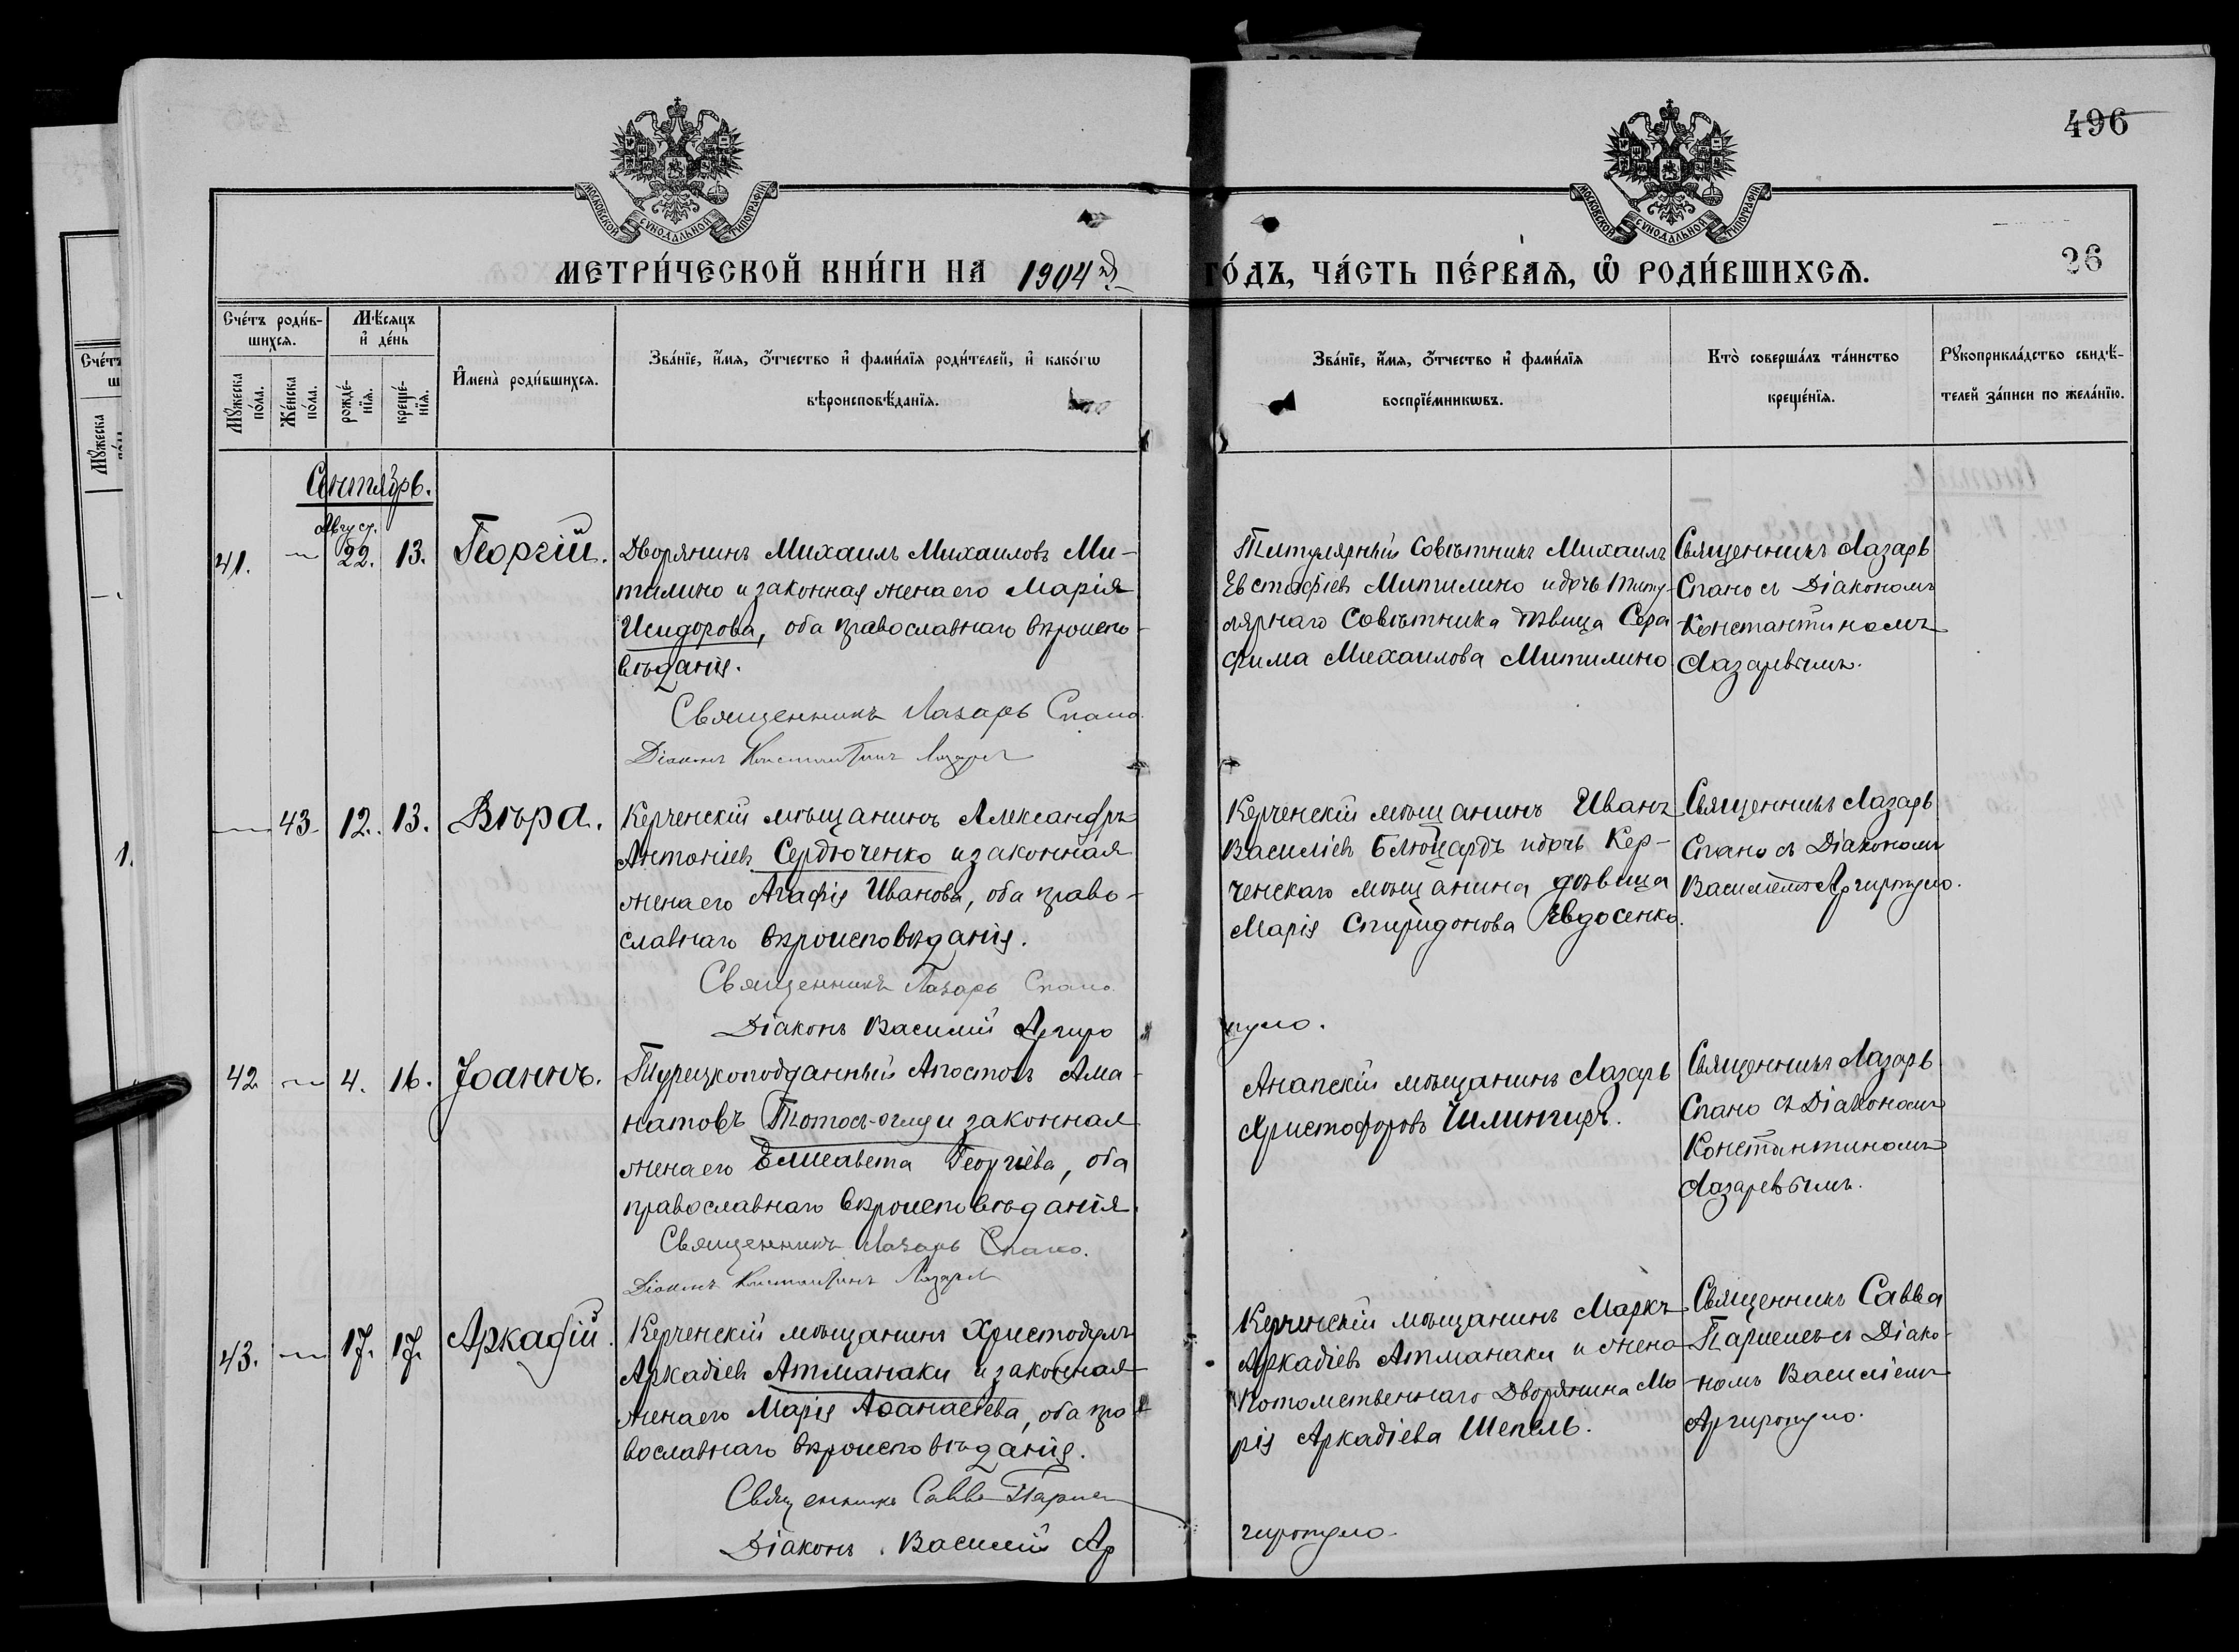 496
26
МОСКОВСКОЙ СѴНОДАЛЬНОЙ ТИПОГРАФІИ
МОСКОВСКОЙ СѴНОДАЛЬНОЙ ТИПОГРАФІИ
МЕТРИ́ЧЕСКОЙ КНИ́ГИ НА 1904й ГО́ДЪ, ЧА́СТЬ ПЕ́РВАѦ, Ѡ҆ РОДИ́ВШИХСѦ.
Сче́тъ роди́в-
шихсѧ.
Мꙋжеска по́ла.
Же́нска по́ла.
Мѣ́сѧцъ
и҆ де́нь
рожде́-
нїѧ.
креще́-
нїѧ.
И҆мена̀ роди́вшихсѧ.
Зва́нїе, и҆́мѧ, ѻ҆́тчество и҆ фами́лїѧ роди́телей, и҆ како́гѡ
вѣроисповѣ́данїѧ.
Зва́нїе, и҆́мѧ, ѻ҆́тчество и҆ фами́лїѧ
воспрїе́мникѡвъ.
Кто̀ соверша́лъ та́инство
креще́нїѧ.
Рꙋкоприкла́дство свидѣ́-
телей за́писи по жела́нїю.
Сентябрь.
Август.
41. — 22. 13. Георгій.
Дворянинъ Михаилъ Михаиловъ Ми-
тилино и законная жена его Марія
Исидорова, оба православнаго вѣроиспо-
вѣданія.
Священникъ Лазарь Спано
Діаконъ Константинъ Лазаревъ
Титулярный Совѣтникъ Михаилъ
Евстафіевъ Митилино и дочь Титу-
лярнаго Совѣтника дѣвица Сера
фима Михаилова Митилино
Священникъ Лазарь
Спано съ Діакономъ
Константиномъ
Лазаревымъ.
— 43. 12. 13. Вѣра.
Керченскій мѣщанинъ Александръ
Антоніевъ Сердюченко и законная
жена его Агафія Иванова, оба право-
славнаго вѣроисповѣданія.
Священникъ Лазарь Спано.
Діаконъ Василій Аргиро
пуло.
Керченскій мѣщанинъ Иванъ
Василіевъ Блюцардъ и дочь Кер-
ченскаго мѣщанина дѣвица
Марія Спиридонова Евдосенко.
Священникъ Лазарь
Спано съ Діакономъ
Василіемъ Аргиропуло.
42 — 4. 16. Іоаннъ.
Турецкоподданный Апостолъ Ама-
натовъ Тотосъ-оглу и законная
жена его Елисавета Георгіева, оба
православнаго вѣроисповѣданія.
Священникъ Лазарь Спано.
Діаконъ Константинъ Лазаревъ
Анапскій мѣщанинъ Лазарь
Христофоровъ Чилингиръ.
Священникъ Лазарь
Спано съ Діакономъ
Константиномъ
Лазаревымъ.
43. — 17. 17. Аркадій.
Керченскій мѣщанинъ Христодулъ
Аркадіевъ Атманаки и законная
жена его Марія Аѳанасіева, оба пра
вославнаго вѣроисповѣданія.
Священникъ Савва
Діаконъ Василій Ар
гиропуло.
Керченскій мѣщанинъ Маркъ
Аркадіевъ Атманаки и жена
Потомственнаго Дворянина Ма
рія Аркадіева Шепель.
Священникъ Савва
съ Діако-
номъ Василіемъ
Аргиропуло.